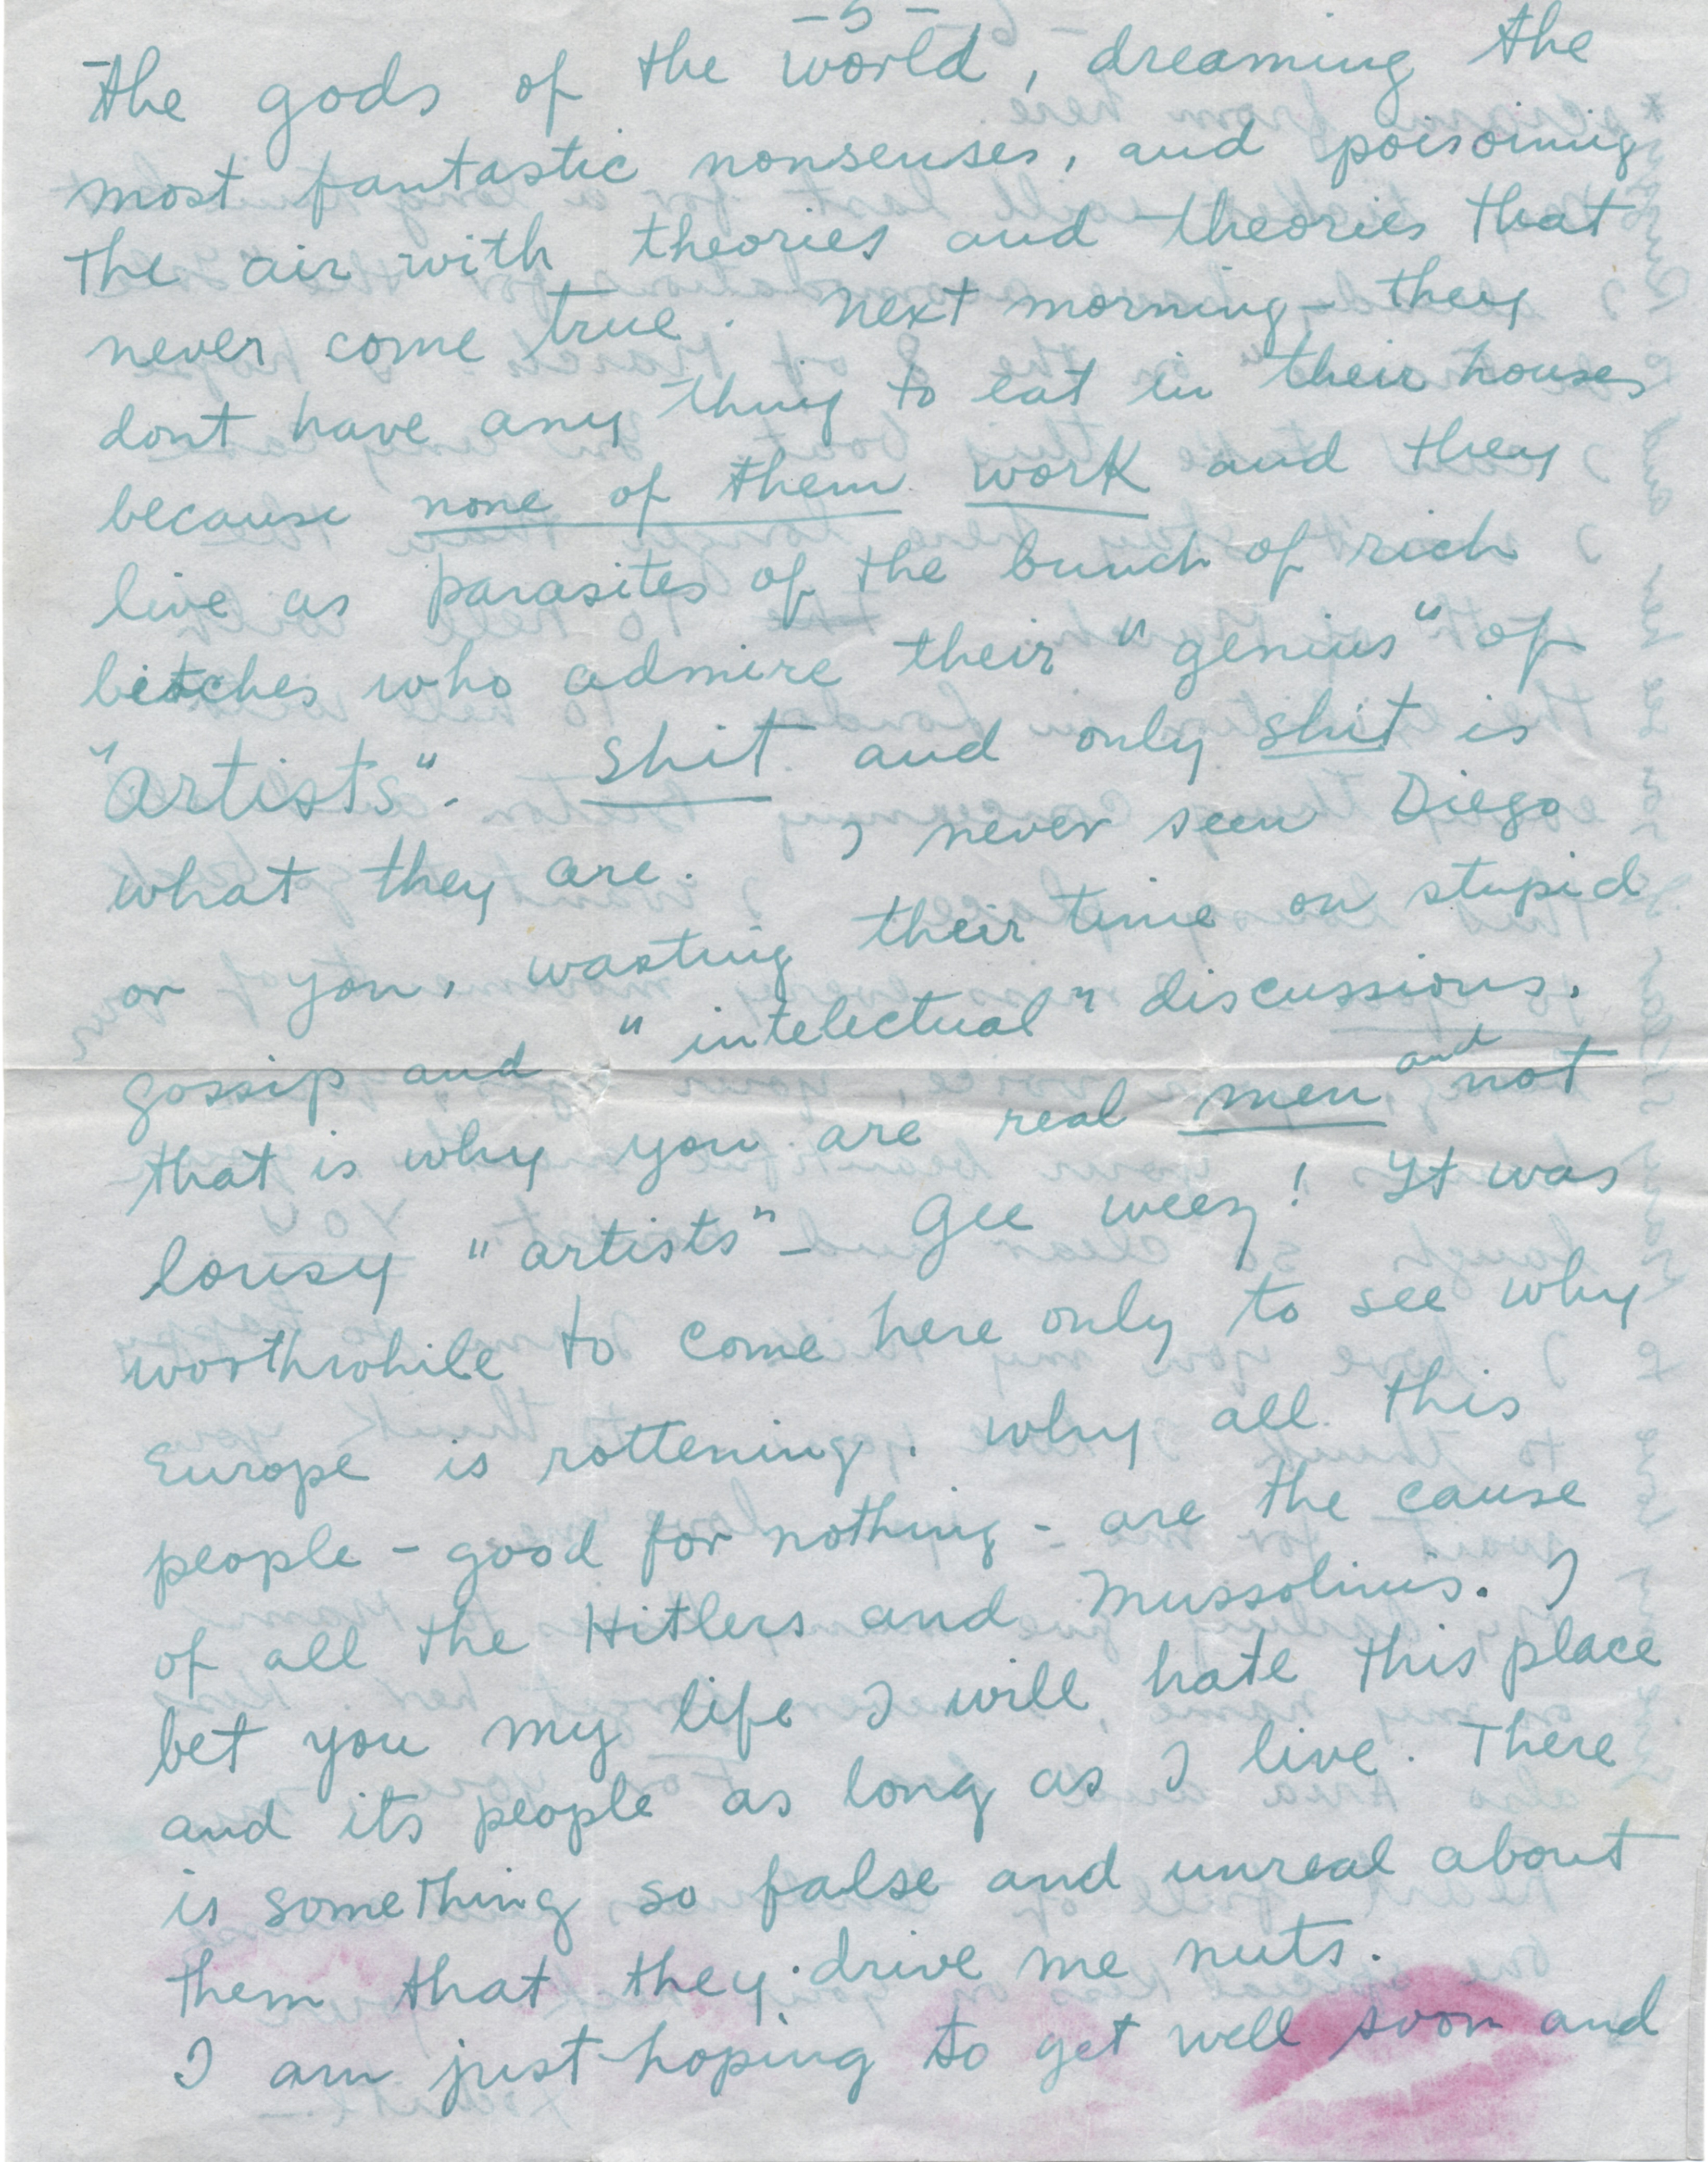 -5-
the gods of the world, dreaming the
most fantastic nonsenses, and poisoning
the air with theories and theories that
never come true. Next morning - they
dont have any thing to eat in their houses
because none of them work and they
live as parasites of the bunch of rich
bitches who admire their "genius" of
"artists". Shit and only shit is
what they are. I never seen Diego
or you, wasting their time on stupid
gossip and "intelectual" discussions.
that is why you are real men and not
lousy "artists" - Gee weez! It was
worthwhile to come here only to see why
Europe is rottening, why all this
people - good for nothing - are the cause
of all the Hitlers and Mussolinis. I
bet you my life I will hate this place
and its people as long as I live. There
is something so false and unreal about
them that they drive me nuts.
I am just hoping to get well soon and